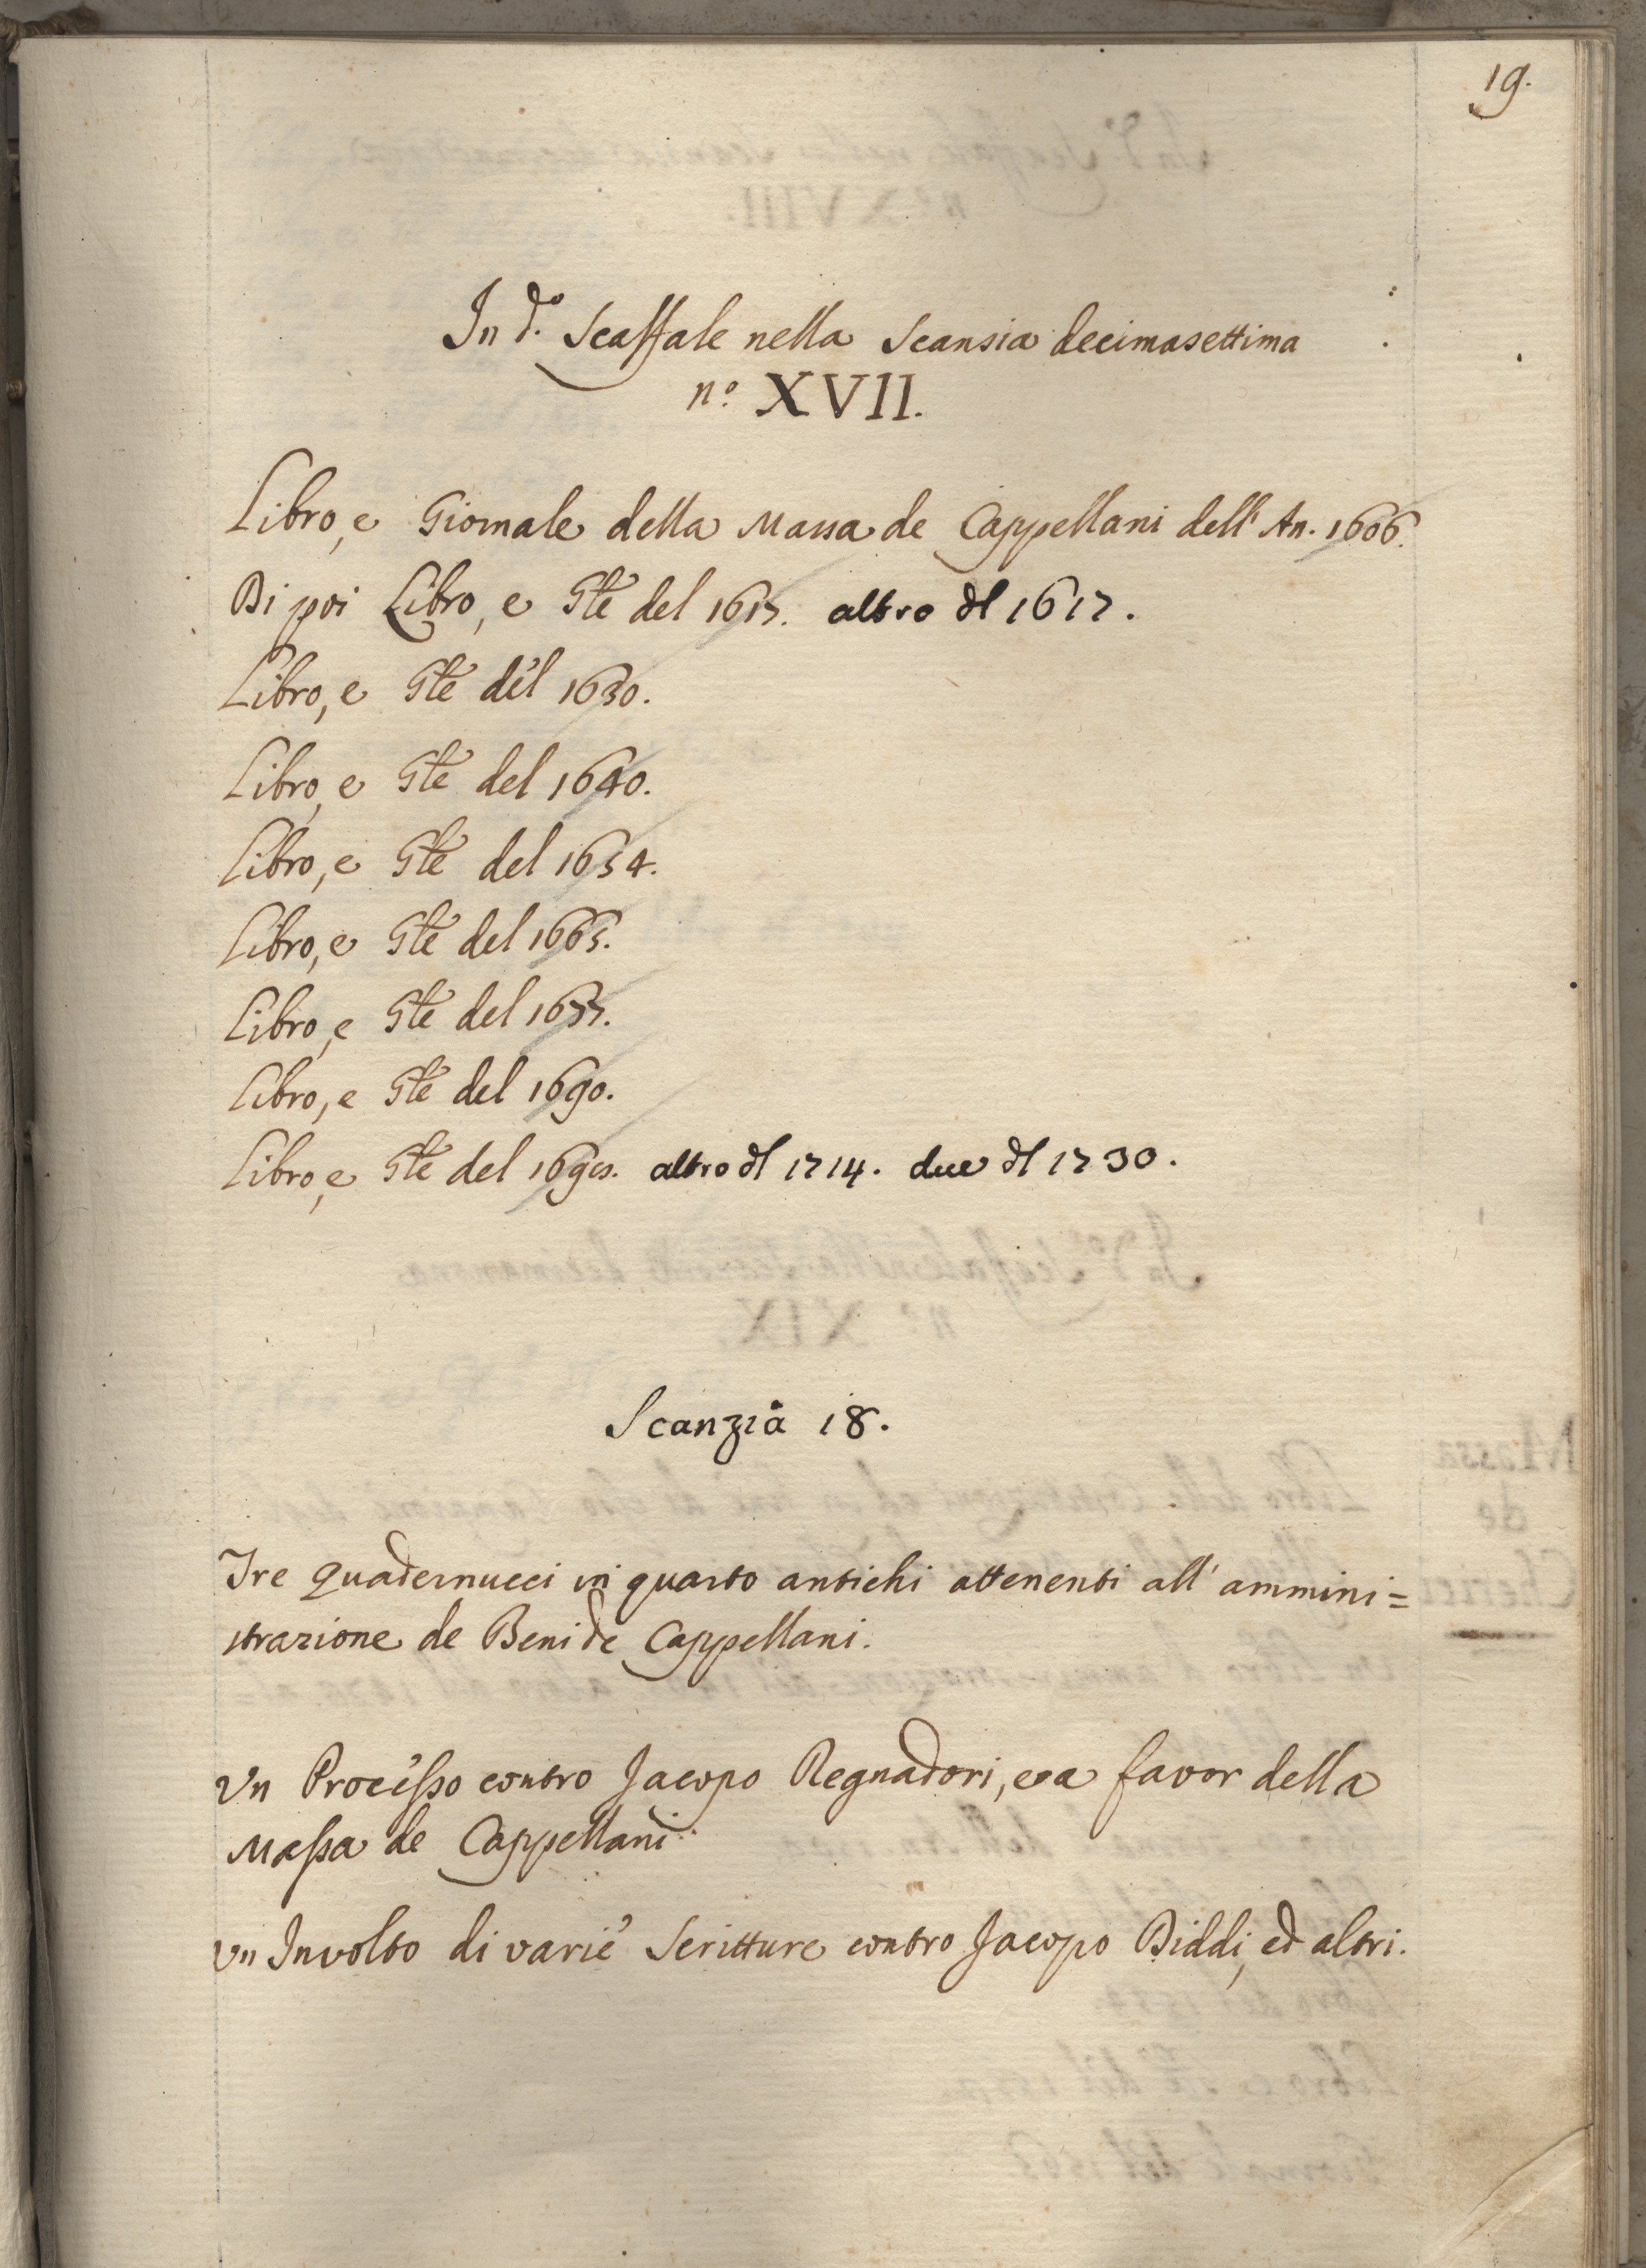 19.
In d.o Scaffale nella Scansia decimasettima
n.o XVII.
Libro, e Giornale della Massa de Cappellani dell' An. 1606.
Di poi Libro, e Gle del 1617. altro dl 1617.
Libro, e Gle del 1630.
Libro, e Gle del 1640.
Libro, e Gle del 1654.
Libro, e Gle del 1665.
Libro, e Gle del 1677.
Libro, e Gle del 1690.
Libro, e Gle del altro dl 1714. due dl 1730.
Scanzia 18.
Tre Quadernucci in quarto antichi attenenti all' ammini=
strazione de Beni de Cappellani.
Un Processo contro Jacopo Regnadori, e a favor della
Massa de Cappellani
Un Involto di varie Scritture contro Jacopo Biddi, ed altri.